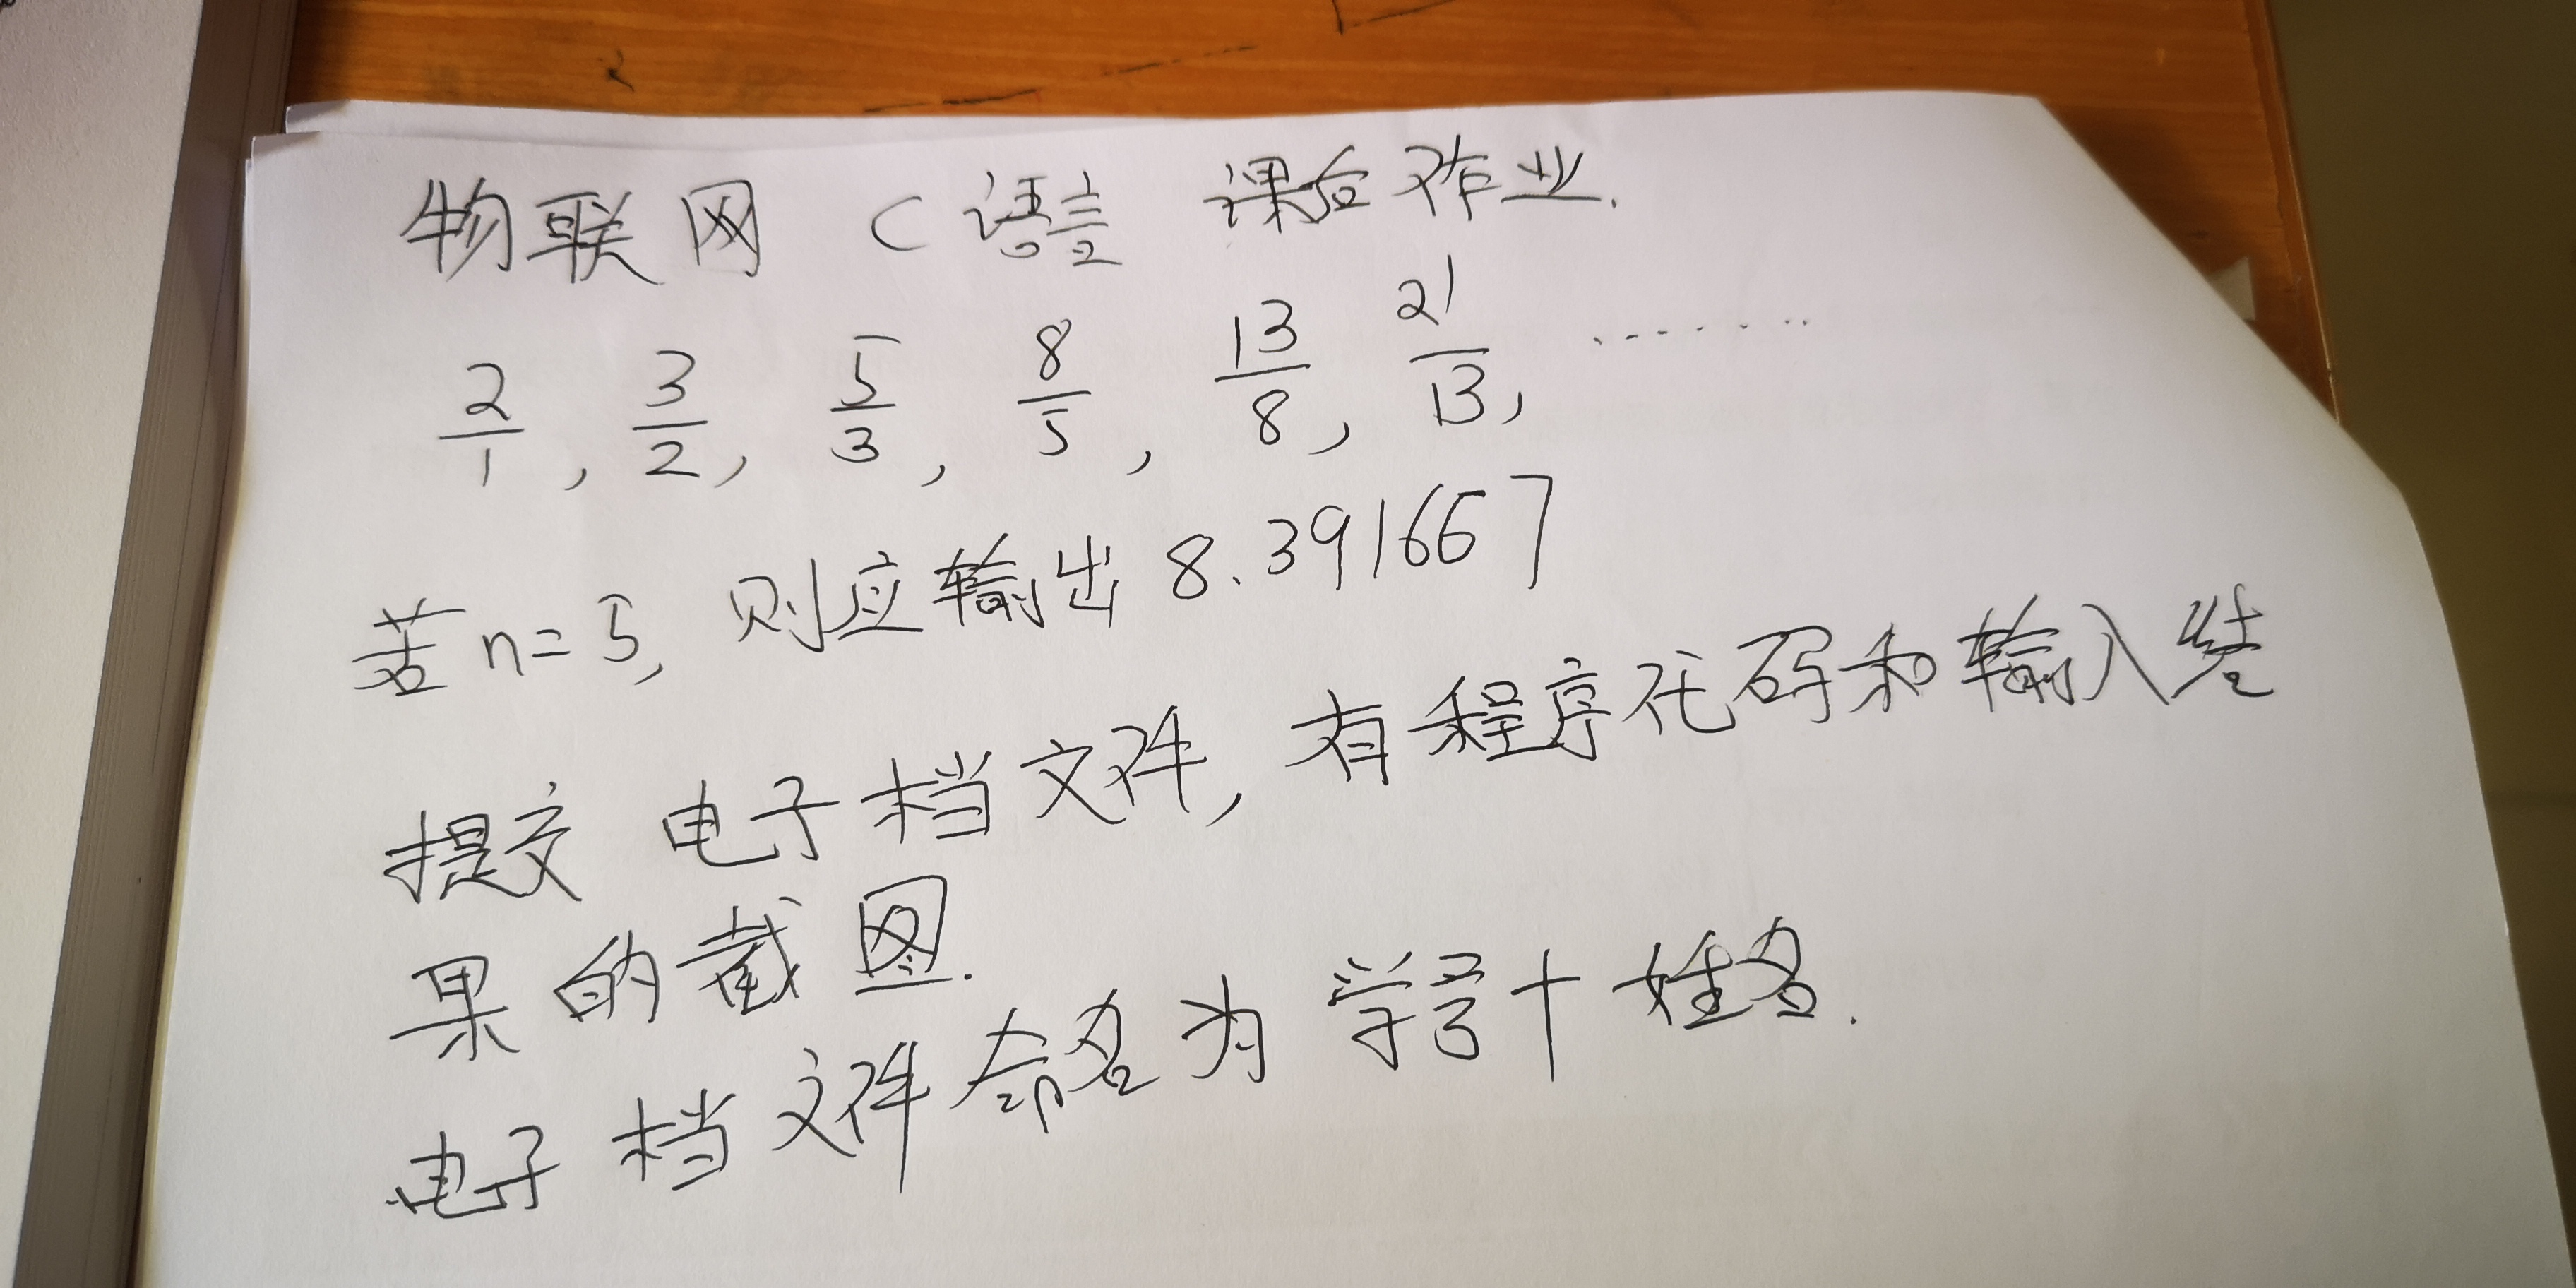 物联网 C语言 课后作业.
2/1, 3/2, 5/3, 8/5, 13/8, 21/13, ........
若n=5, 则应输出 8.391667
提交 电子档文件, 有程序代码和输入结
果的截图.
电子档文件命名为 学号+姓名.